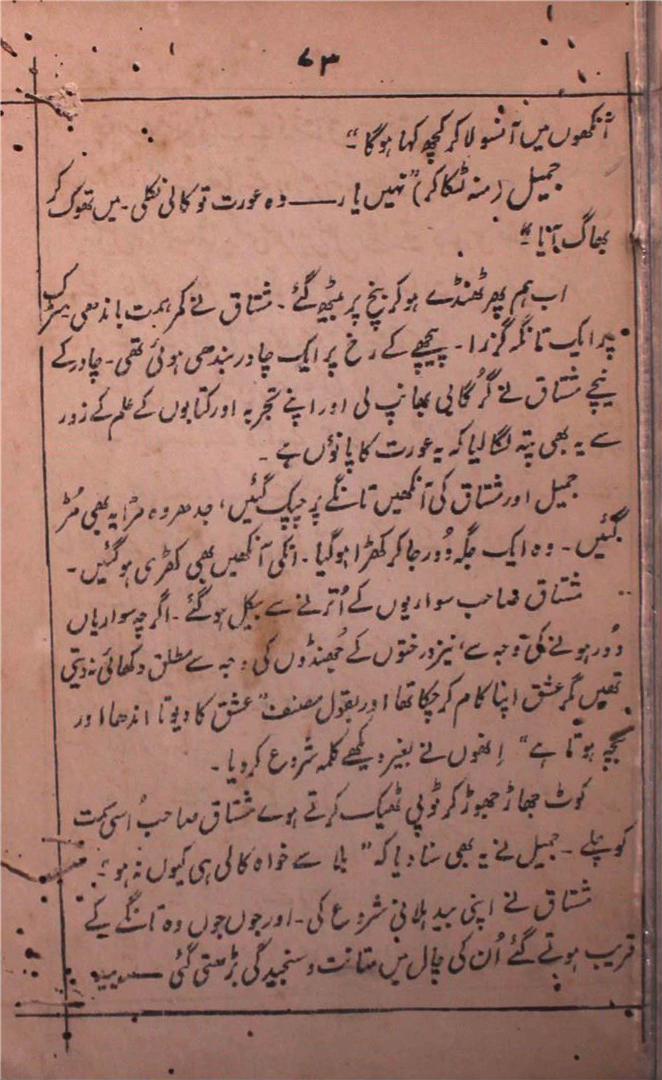 ۷۳
آنکھوں میں آنسو لا کر کچھ کہا ہوگا"۔
جمیل (منہ لٹکا کر) "نہیں یار—— وہ عورت تو کالی نکلی۔ میں تھوک کر
بھاگ آیا"
اب ہم پھر ٹھنڈے ہو کر بنچ پر بیٹھ گئے۔ مشتاق نے کمر ہمت باندھی سڑک
پر ایک تانگہ گزرا۔ پیچھے کے رخ پر ایک چادر بندھی ہوئی تھی۔ چادر کے
نیچے مشتاق نے گُرگابی بھانپ لی اور اپنے تجربہ اور کتابوں کے علم کے زور
سے یہ بھی پتہ لگا لیا کہ یہ عورت کا پاؤں ہے۔
جمیل اور مشتاق کی آنکھیں تانگے پر چپک گئیں، جدھر وہ مڑا یہ بھی مُڑ
گئیں۔ وہ ایک جگہ دُور جا کر کھڑا ہوگیا۔ انکی آنکھیں بھی کھڑی ہوگئیں۔
مشتاق صاحب سواریوں کے اُترنے سے بیکل ہوگئے۔ اگرچہ سواریاں
دُور ہونے کی وجہ سے، نیز درختوں کے جُھنڈوں کی وجہ سے مطلق دکھائی نہ دیتی
تھیں مگر عشق اپنا کام کر چکا تھا اور بقول مصنف "عشق کا دیوتا اندھا اور
بچہ ہوتا ہے" اِنھوں نے بغیر دیکھے کلمہ شروع کر دیا۔
کوٹ جھاڑ جھوڑ کر ٹوپی ٹھیک کرتے ہوے مشتاق صاحب اُسی سمت
کو چلے۔ جمیل نے یہ بھی سنا دیا کہ "بلا سے خواہ کالی ہی کیوں نہ ہو"۔
مشتاق نے اپنی بید ہلانی شروع کی۔ اور جوں جوں وہ تانگے کے
قریب ہوتے گئے اُن کی چال میں متانت و سنجیدگی بڑھتی گئی ——